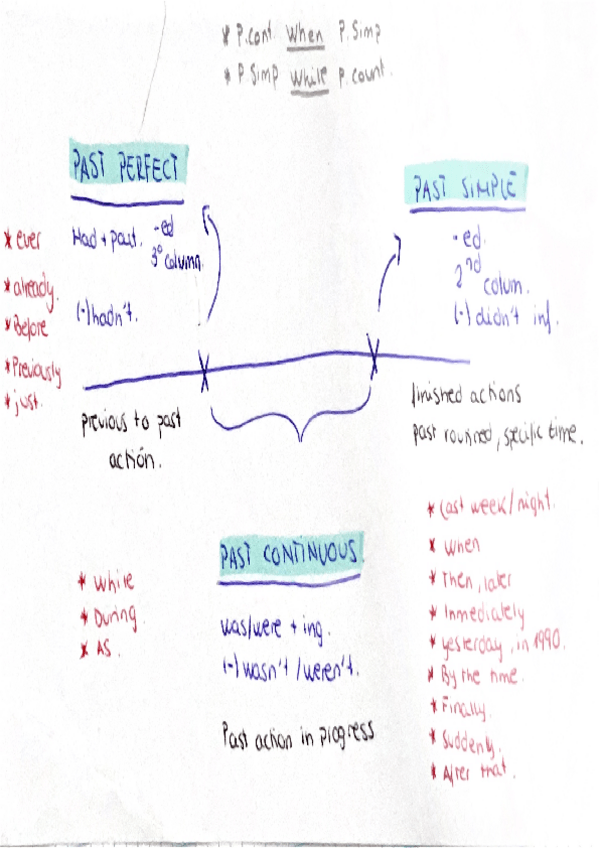 * P.cont. When P.Simp
* P.Simp While P.count.
PAST PERFECT
Had + past. -ed
3º column.
(-) hadn't.
* ever
* already.
* Before
* Previously
* just.
previous to past
actión.
PAST SIMPLE
-ed.
2nd
colum.
(-) didn't inf.
finished actions
Past routined, specific time.
* Last week/night.
* When
* Then, later
* Inmediately
* yesterday, in 1990.
* By the time.
* Finally.
* Suddenly.
* After that.
PAST CONTINUOUS.
was/were + ing.
(-) wasn't / weren't.
Past action in progress
* While
* During.
* AS.